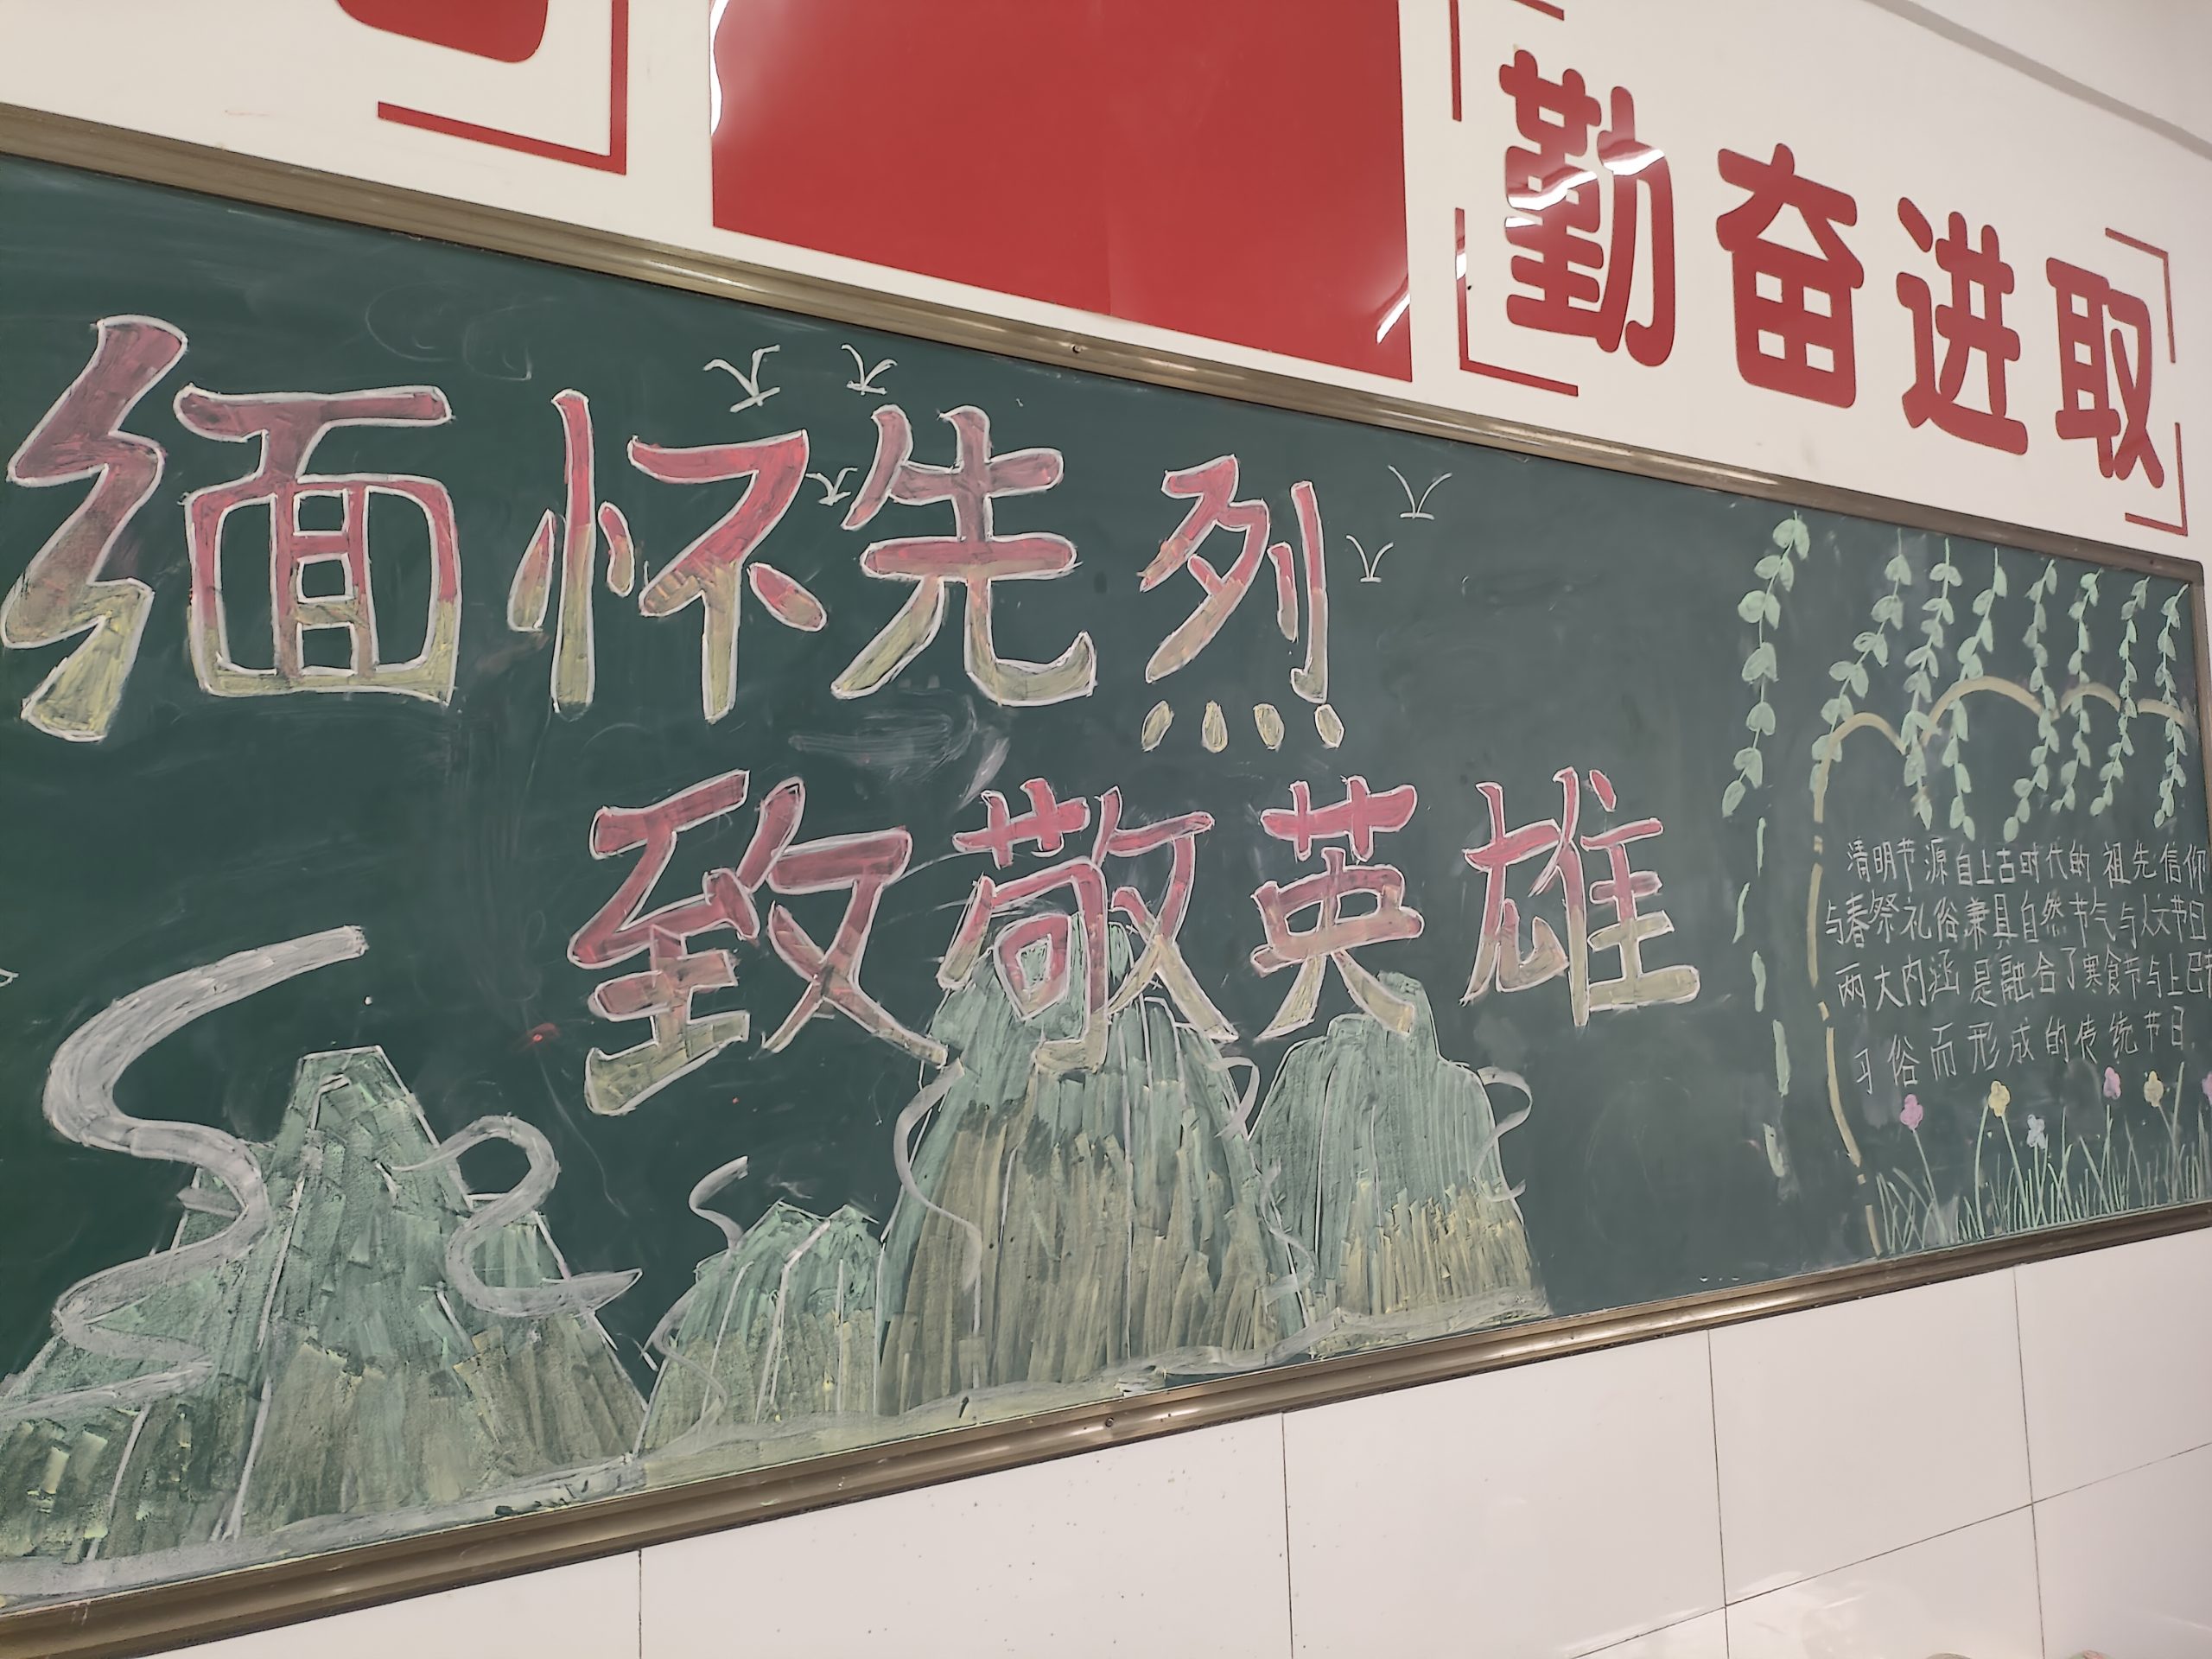 勤奋进取
缅怀先烈
致敬英雄
清明节源自上古时代的祖先信仰
与春祭礼俗兼具自然节气与人文节日
两大内涵是融合了寒食节与上巳节
习俗而形成的传统节日